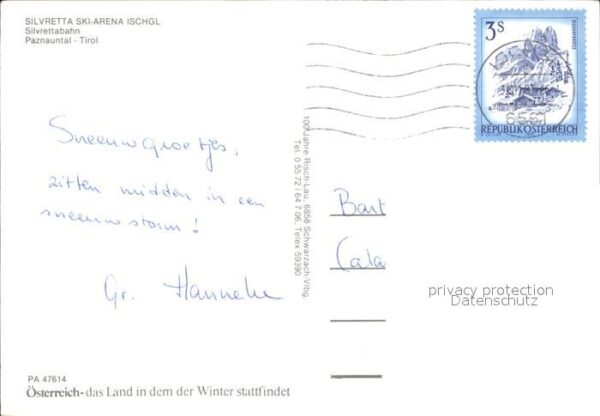 SILVRETTA SKI-ARENA ISCHGL
Silvrettabahn
Paznauntal - Tirol
3s
REPUBLIK ÖSTERREICH
ISCHGL
6561
Sneeuwgroetjes,
zitten midden in een
sneeuwstorm!
Gr. Hanneke
100 Jahre Risch-Lau, 6858 Schwarzach-Vlbg.
Tel. 0 55 72 / 64 7 06, Telex 59390
Bart
Cala
privacy protection
Datenschutz
PA 47614
Österreich-das Land in dem der Winter stattfindet